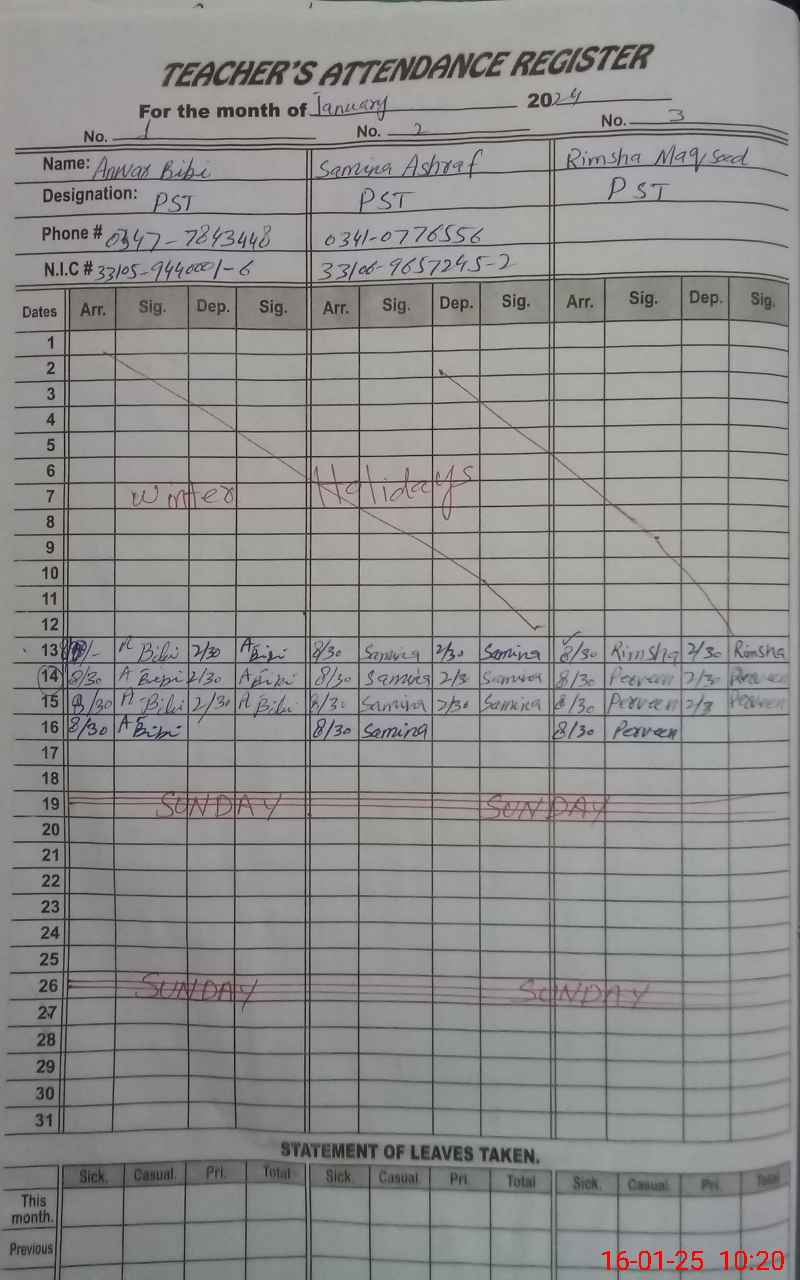 TEACHER'S ATTENDANCE REGISTER
For the month of January 2024
No. 1 No. 2 No. 3
Name: Anwar Bibi Samina Ashraf Rimsha Maqsood
Designation: PST PST PST
Phone # 0347-7843448 0341-0776556
N.I.C # 33105-9440001-6 33106-9657245-2
Dates Arr. Sig. Dep. Sig. Arr. Sig. Dep. Sig. Arr. Sig. Dep. Sig.
1
2
3
4
5
6
7 Winter Holidays
8
9
10
11
12
13 A Bibi 2/30 A Bibi 8/30 Samina 2/30 Samina 8/30 Rimsha 2/30 Rimsha
14 8/30 A Bibi 2/30 A Bibi 8/30 Samina 2/3 Samina 8/30 Perveen 2/30 Perveen
15 8/30 A Bibi 2/30 A Bibi 8/30 Samina 2/30 Samina 8/30 Perveen 2/3 Perveen
16 8/30 A Bibi 8/30 Samina 8/30 Perveen
17
18
19 SUNDAY SUNDAY
20
21
22
23
24
25
26 SUNDAY SUNDAY
27
28
29
30
31
STATEMENT OF LEAVES TAKEN.
Sick. Casual. Pri. Total Sick. Casual. Pri. Total Sick. Casual. Pri. Total
This month.
Previous
16-01-25 10:20